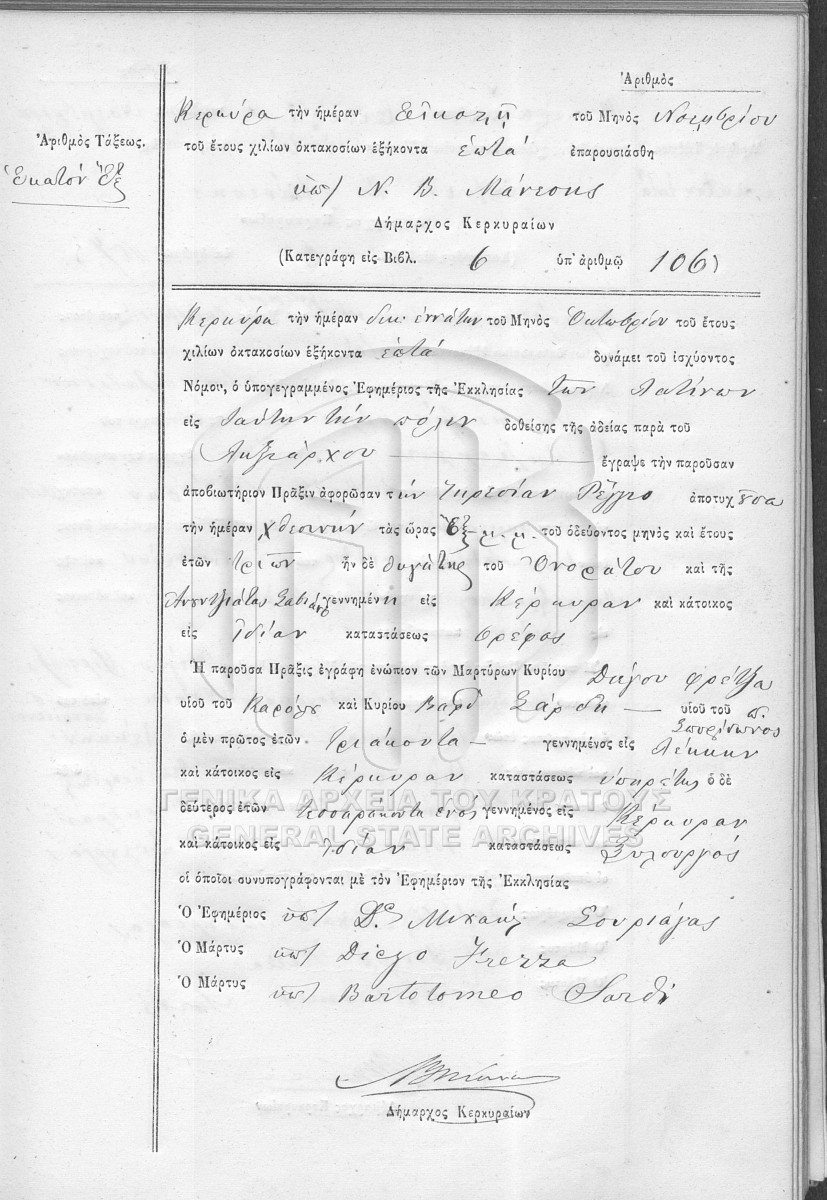 Ἀριθμὸς
Ἀριθμὸς Τάξεως.
Ἑκατόν Ἕξ
Κερκύρα τὴν ἡμέραν τοῦ Μηνὸς Νοεμβρίου
τοῦ ἔτους χιλίων ὀκτακοσίων ἑξήκοντα ἑπτά ἐπαρουσιάσθη
ὑπ/ Ν. Β. Μάνεσης
Δήμαρχος Κερκυραίων
(Κατεγράφη εἰς Βιβλ. 6 ὑπ' ἀριθμῷ 106)
Κερκύρα τὴν ἡμέραν δεκ. ἐννάτην τοῦ Μηνὸς Ὀκτωβρίου τοῦ ἔτους
χιλίων ὀκτακοσίων ἑξήκοντα ἑπτά δυνάμει τοῦ ἰσχύοντος
Νόμου, ὁ ὑπογεγραμμένος Ἐφημέριος τῆς Ἐκκλησίας τῶν Λατίνων
εἰς ταύτην τήν πόλιν δοθείσης τῆς ἀδείας παρὰ τοῦ
Ληξιάρχου ἔγραψε τὴν παροῦσαν
ἀποβιωτήριον Πρᾶξιν ἀφορῶσαν τήν ἀποτυχοῦσα
τὴν ἡμέραν χθεσινήν τὰς ὥρας ἕξ π.μ. τοῦ ὁδεύοντος μηνὸς καὶ ἔτους
ἐτῶν τριῶν ἦν δὲ θυγάτηρ τοῦ Ὀνοράτου καὶ τῆς
Ἀνουντζιάτας γεννημένη εἰς Κέρκυραν καὶ κάτοικος
εἰς Ἰδίαν καταστάσεως βρέφος
Ἡ παροῦσα Πρᾶξις ἐγράφη ἐνώπιον τῶν Μαρτύρων Κυρίου Διέγου Φρέτζα
υἱοῦ τοῦ Καρόλου καὶ Κυρίου Βαρθ Σάρδη υἱοῦ τοῦ π. Σπυρίδωνος
ὁ μὲν πρῶτος ἐτῶν τριάκοντα γεννημένος εἰς Λέκκην
καὶ κάτοικος εἰς Κέρκυραν καταστάσεως ὑπηρέτης ὁ δὲ
δεύτερος ἐτῶν τεσσαράκοντα ἑνός γεννημένος εἰς Κέρκυραν
καὶ κάτοικος εἰς Ἰδίαν καταστάσεως ξυλουργός
οἱ ὁποῖοι συνυπογράφονται μὲ τὸν Ἐφημέριον τῆς Ἐκκλησίας
Ὁ Ἐφημέριος ὑπ/ Μιχαήλ Σουριάγας
Ὁ Μάρτυς ὑπ/ Diego Frezza
Ὁ Μάρτυς ὑπ/ Bartolomeo Sardi
Δήμαρχος Κερκυραίων
ΓΕΝΙΚΑ ΑΡΧΕΙΑ ΤΟΥ ΚΡΑΤΟΥΣ
GENERAL STATE ARCHIVES